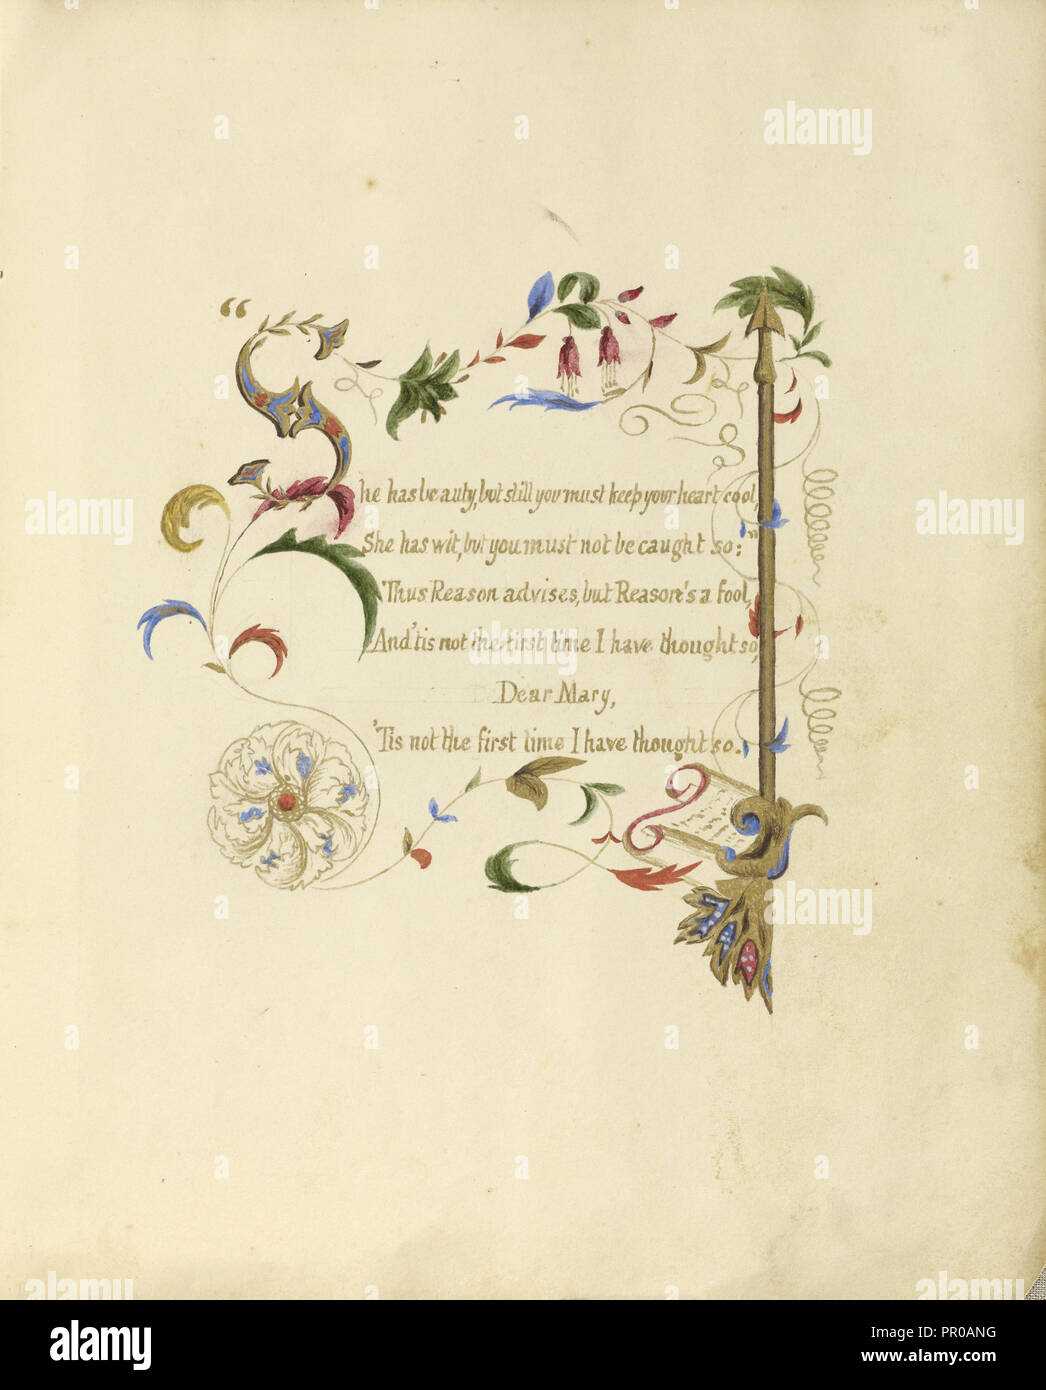 “She has beauty, but still you must keep your heart cool,
She has wit, but you must not be caught so:”
Thus Reason advises, but Reason's a fool,
And 'tis not the first time I have thought so,
Dear Mary,
'Tis not the first time I have thought so.
alamy
alamy
Image ID: PR0ANG
www.alamy.com